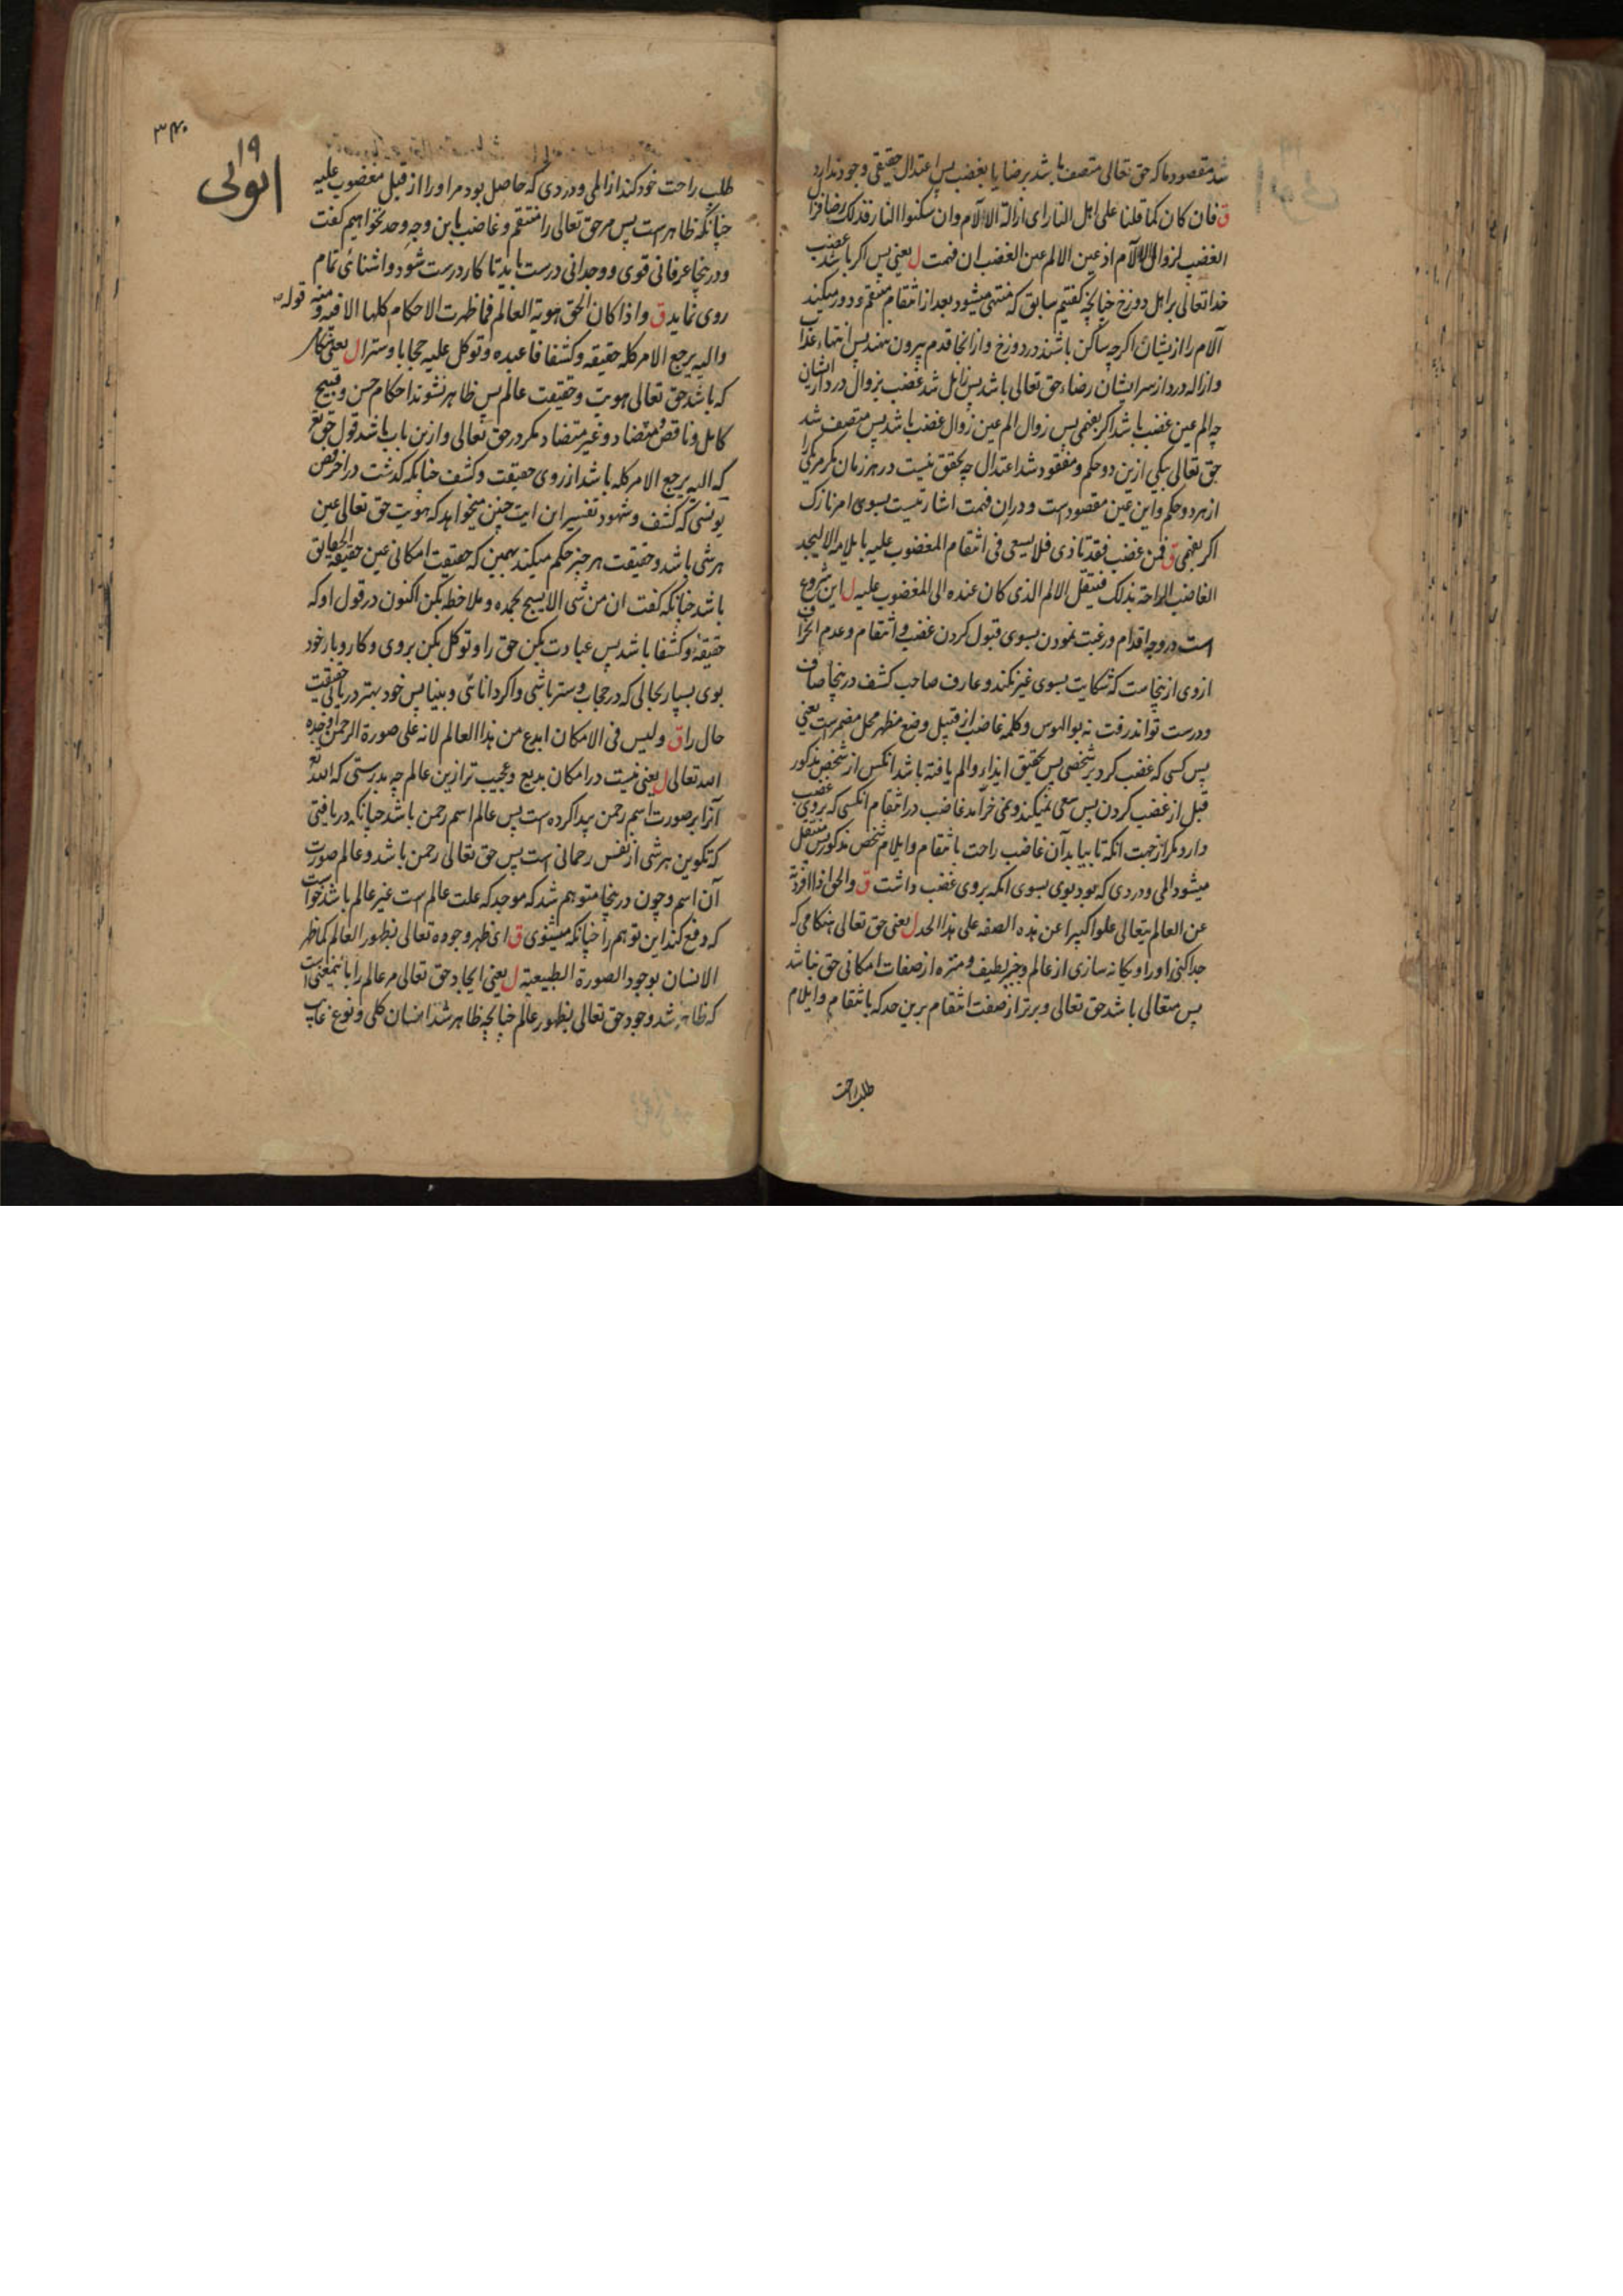 شد مقصود ما که حق تعالی متصف باشد برضا یا بغضب پس اعتدال حقیقی وجود ندارد
ق فان کان کما قلنا علی اهل النار ای ازالة الآلام وان سکنوا النار فذلک رضا فزال
الغضب لزوال الآلام اذ عین الالم عین الغضب ان فهمت ل یعنی پس اکر باشد غضب
خدا تعالی بر اهل دوزخ چنانچه کفتیم سابق که منتهی میشود بعد از انتقام منتقم و دور میکند
آلام را از یشان اکرچه ساکن باشند در دوزخ و از انجا قدم بیرون ننهند پس انتهاء عذاب
و ازاله درد از سر ایشان رضاء حق تعالی باشد پس زایل شد غضب بزوال درد از ایشان
چه الم عین غضب باشد اکر بفهمی پس زوال الم عین زوال غضب باشد پس متصف شد
حق تعالی بیکی ازین دو حکم و مفقود شد اعتدال چه تحقق نیست در هر زمان مکر مریکی را
از هر دو حکم و این عین مقصود است و در ان فهمت اشارتیست بسوی امر نازک
اکر بفهمی ق فمن غضب فقد تاذی فلا یسعی فی انتقام المغضوب علیه بایلامه الا لیجد
الغاضب الراحة بذلک فینتقل الالم الذی کان عنده الی المغضوب علیه ل این شروع
است در وجه اقدام و رغبت نمودن بسوی قبول کردن غضب و انتقام و عدم انحراف
ازوی ازینجاست که شکایت بسوی غیر نکند و عارف صاحب کشف درینجا صاف
و درست تواند رفت نه بوالهوس و کلمه غاضب از قبیل وضع مظهر محل مضمر است یعنی
پس کسی که غضب کرد بر شخصی پس بتحقیق ایذاء و الم یافته باشد انکس از شخص مذکور
قبل از غضب کردن پس سعی نمیکند و نمی خرامد غاضب در انتقام انکسی که بروی غضب
دارد مکر از جهت انکه تا بیابد آن غاضب راحت بانتقام و ایلام شخص مذکور پس منتقل
میشود المی و دردی که بود بوی بسوی انکه بروی غضب داشت ق والحق اذا افردته
عن العالم یتعالی علوا کبیرا عن هذه الصفة علی هذا الحد ل یعنی حق تعالی هنکامی که
جدا کنی او را و یکانه سازی از عالم و خبر لطیف و منزه از صفات امکانی حق نباشد
پس متعالی باشد حق تعالی و برتر از صفت انتقام برین حد که بانتقام و ایلام
طلب راحت
۳۴۰
۱۹
ایوبی
طلب راحت خود کند از المی و دردی که حاصل بود مر او را از قبل مغضوب علیه
چنانکه ظاهر است پس مر حق تعالی را منتقم و غاضب باین وجه و حد نخواهیم کفت
و درینجا عرفانی قوی و وجدانی درست باید تا کار درست شود و اشنائی تمام
روی نماید ق و اذا کان الحق هویة العالم فما ظهرت الاحکام کلها الا فیه و منه قوله
والیه یرجع الامر کله حقیقة و کشفا فاعبده و توکل علیه حجابا و سترا ل یعنی هنکامی
که باشد حق تعالی هویت و حقیقت عالم پس ظاهر نشوند احکام حسن و قبیح
کامل و ناقص و متضاد و غیر متضاد مکر در حق تعالی و ازین باب باشد قول حق تع
که الیه یرجع الامر کله باشد از روی حقیقت و کشف چنانکه کذشت در اخر فص
یونسی که کشف و شهود تفسیر این ایت چنین میخواهد که هویت حق تعالی عین
هر شی باشد و حقیقت هر چیز حکم میکند بهمین که حقیقت امکانی عین حقیقة الحقایق
باشد چنانکه کفت ان من شی الا یسبح بحمده و ملاحظه بکن اکنون در قول او که
حقیقة و کشفا باشد پس عبادت بکن حق را و توکل بکن بروی و کار و بار خود
بوی بسپار بحالی که در حجاب و ستر باشی و اکر دانائی و بینا پس خود بهتر دریابی حقیقت
حال را ق ولیس فی الامکان ابدع من هذا العالم لانه علی صورة الرحمن اوجده
الله تعالی ل یعنی نیست در امکان بدیع و عجیب تر ازین عالم چه بدرستی که الله تع
آنرا بر صورت اسم رحمن پیدا کرده است پس عالم اسم رحمن باشد چنانکه دریافتی
که تکوین هر شی از نفس رحمانی است پس حق تعالی رحمن باشد و عالم صورت
آن اسم و چون درینجا متوهم شد که موجد که علت عالم است غیر عالم باشد خواست
که دفع کند این توهم را چنانکه میشنوی ق ای ظهر وجوده تعالی بظهور العالم کما ظهر
الانسان بوجود الصورة الطبیعیة ل یعنی ایجاد حق تعالی مر عالم را باینمعنی است
که ظاهر شد وجود حق تعالی بظهور عالم چنانچه ظاهر شد انسان کلی و نوع غایب